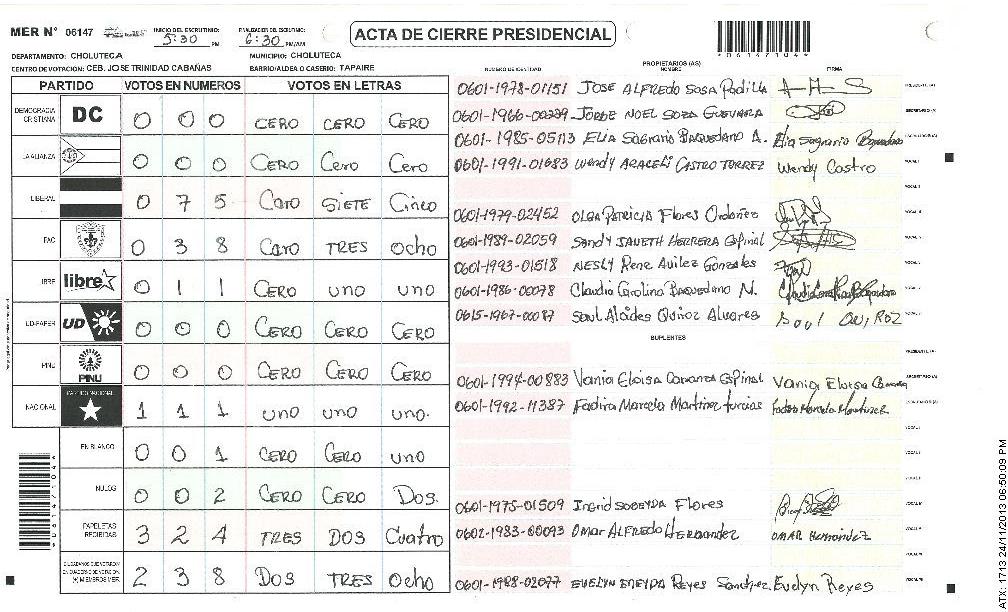 MER N° 06147 INICIO DEL ESCRUTINIO: 5:30 PM FINALIZACION DEL ESCRUTINIO: 6:30 PM/AM ACTA DE CIERRE PRESIDENCIAL
DEPARTAMENTO: CHOLUTECA MUNICIPIO: CHOLUTECA
CENTRO DE VOTACION: CEB. JOSE TRINIDAD CABAÑAS BARRIO/ALDEA O CASERIO: TAPAIRE
PARTIDO VOTOS EN NUMEROS VOTOS EN LETRAS
DEMOCRACIA CRISTIANA DC 0 0 0 CERO CERO CERO
LA ALIANZA 0 0 0 CERO Cero Cero
LIBERAL 0 7 5 Cero SIETE Cinco
PAC 0 3 8 Cero TRES Ocho
LIBRE libre 0 1 1 CERO uno uno
UD-FAPER UD 0 0 0 CERO CERO CERO
PINU PINU 0 0 0 CERO CERO CERO
NACIONAL PARTIDO NACIONAL 1 1 1 uno uno uno.
EN BLANCO 0 0 1 CERO CERO uno
NULOS 0 0 2 CERO CERO Dos.
PAPELETAS RECIBIDAS 3 2 4 TRES DOS Cuatro
CIUDADANOS QUE VOTARON EN CUADERNO DE VOTACION (+) MIEMBROS MER 2 3 8 Dos TRES Ocho
NUMERO DE IDENTIDAD PROPIETARIOS (AS) NOMBRE FIRMA
0601-1978-01151 JOSE ALFREDO SOSA Padilla PRESIDENTE (A)
0601-1966-00229 JORGE NOEL SOZA GUEVARA SECRETARIO (A)
0601-1985-05113 Elia Sagrario BAQUEDANO A. Elia Sagrario Baquedano
0601-1991-01683 Wendy ARACELI CASTRO TORREZ Wendy Castro VOCAL I
0601-1979-02452 OLGA PATRICIA Flores Ordoñez
0601-1989-02059 Sandy JANETH HERRERA Espinal
0601-1993-01518 NESLY Rene Avilez Gonzales
0601-1986-00078 Claudia Carolina BAQUEDANO N.
0615-1967-00087 Saul Alcides Quiñoz Alvares Saul Qui,Roz
SUPLENTES
PRESIDENTE (A)
0601-1994-00883 Vania Eloisa Carranza Espinal Vania Eloisa SECRETARIO (A)
0601-1992-11387 Fadira Marcela Martinez Turcios Fadira Marcela Martinez
0601-1975-01509 Ingrid SOBEYDA Flores
0602-1983-00093 Omar ALFREDO HERNANDEZ OMAR Hernandez
0601-1988-02077 EVELYN ENEYDA Reyes Sanchez Evelyn Reyes
*06147104*
*06147104*
ATX: 1713 24/11/2013 06:50:09 PM